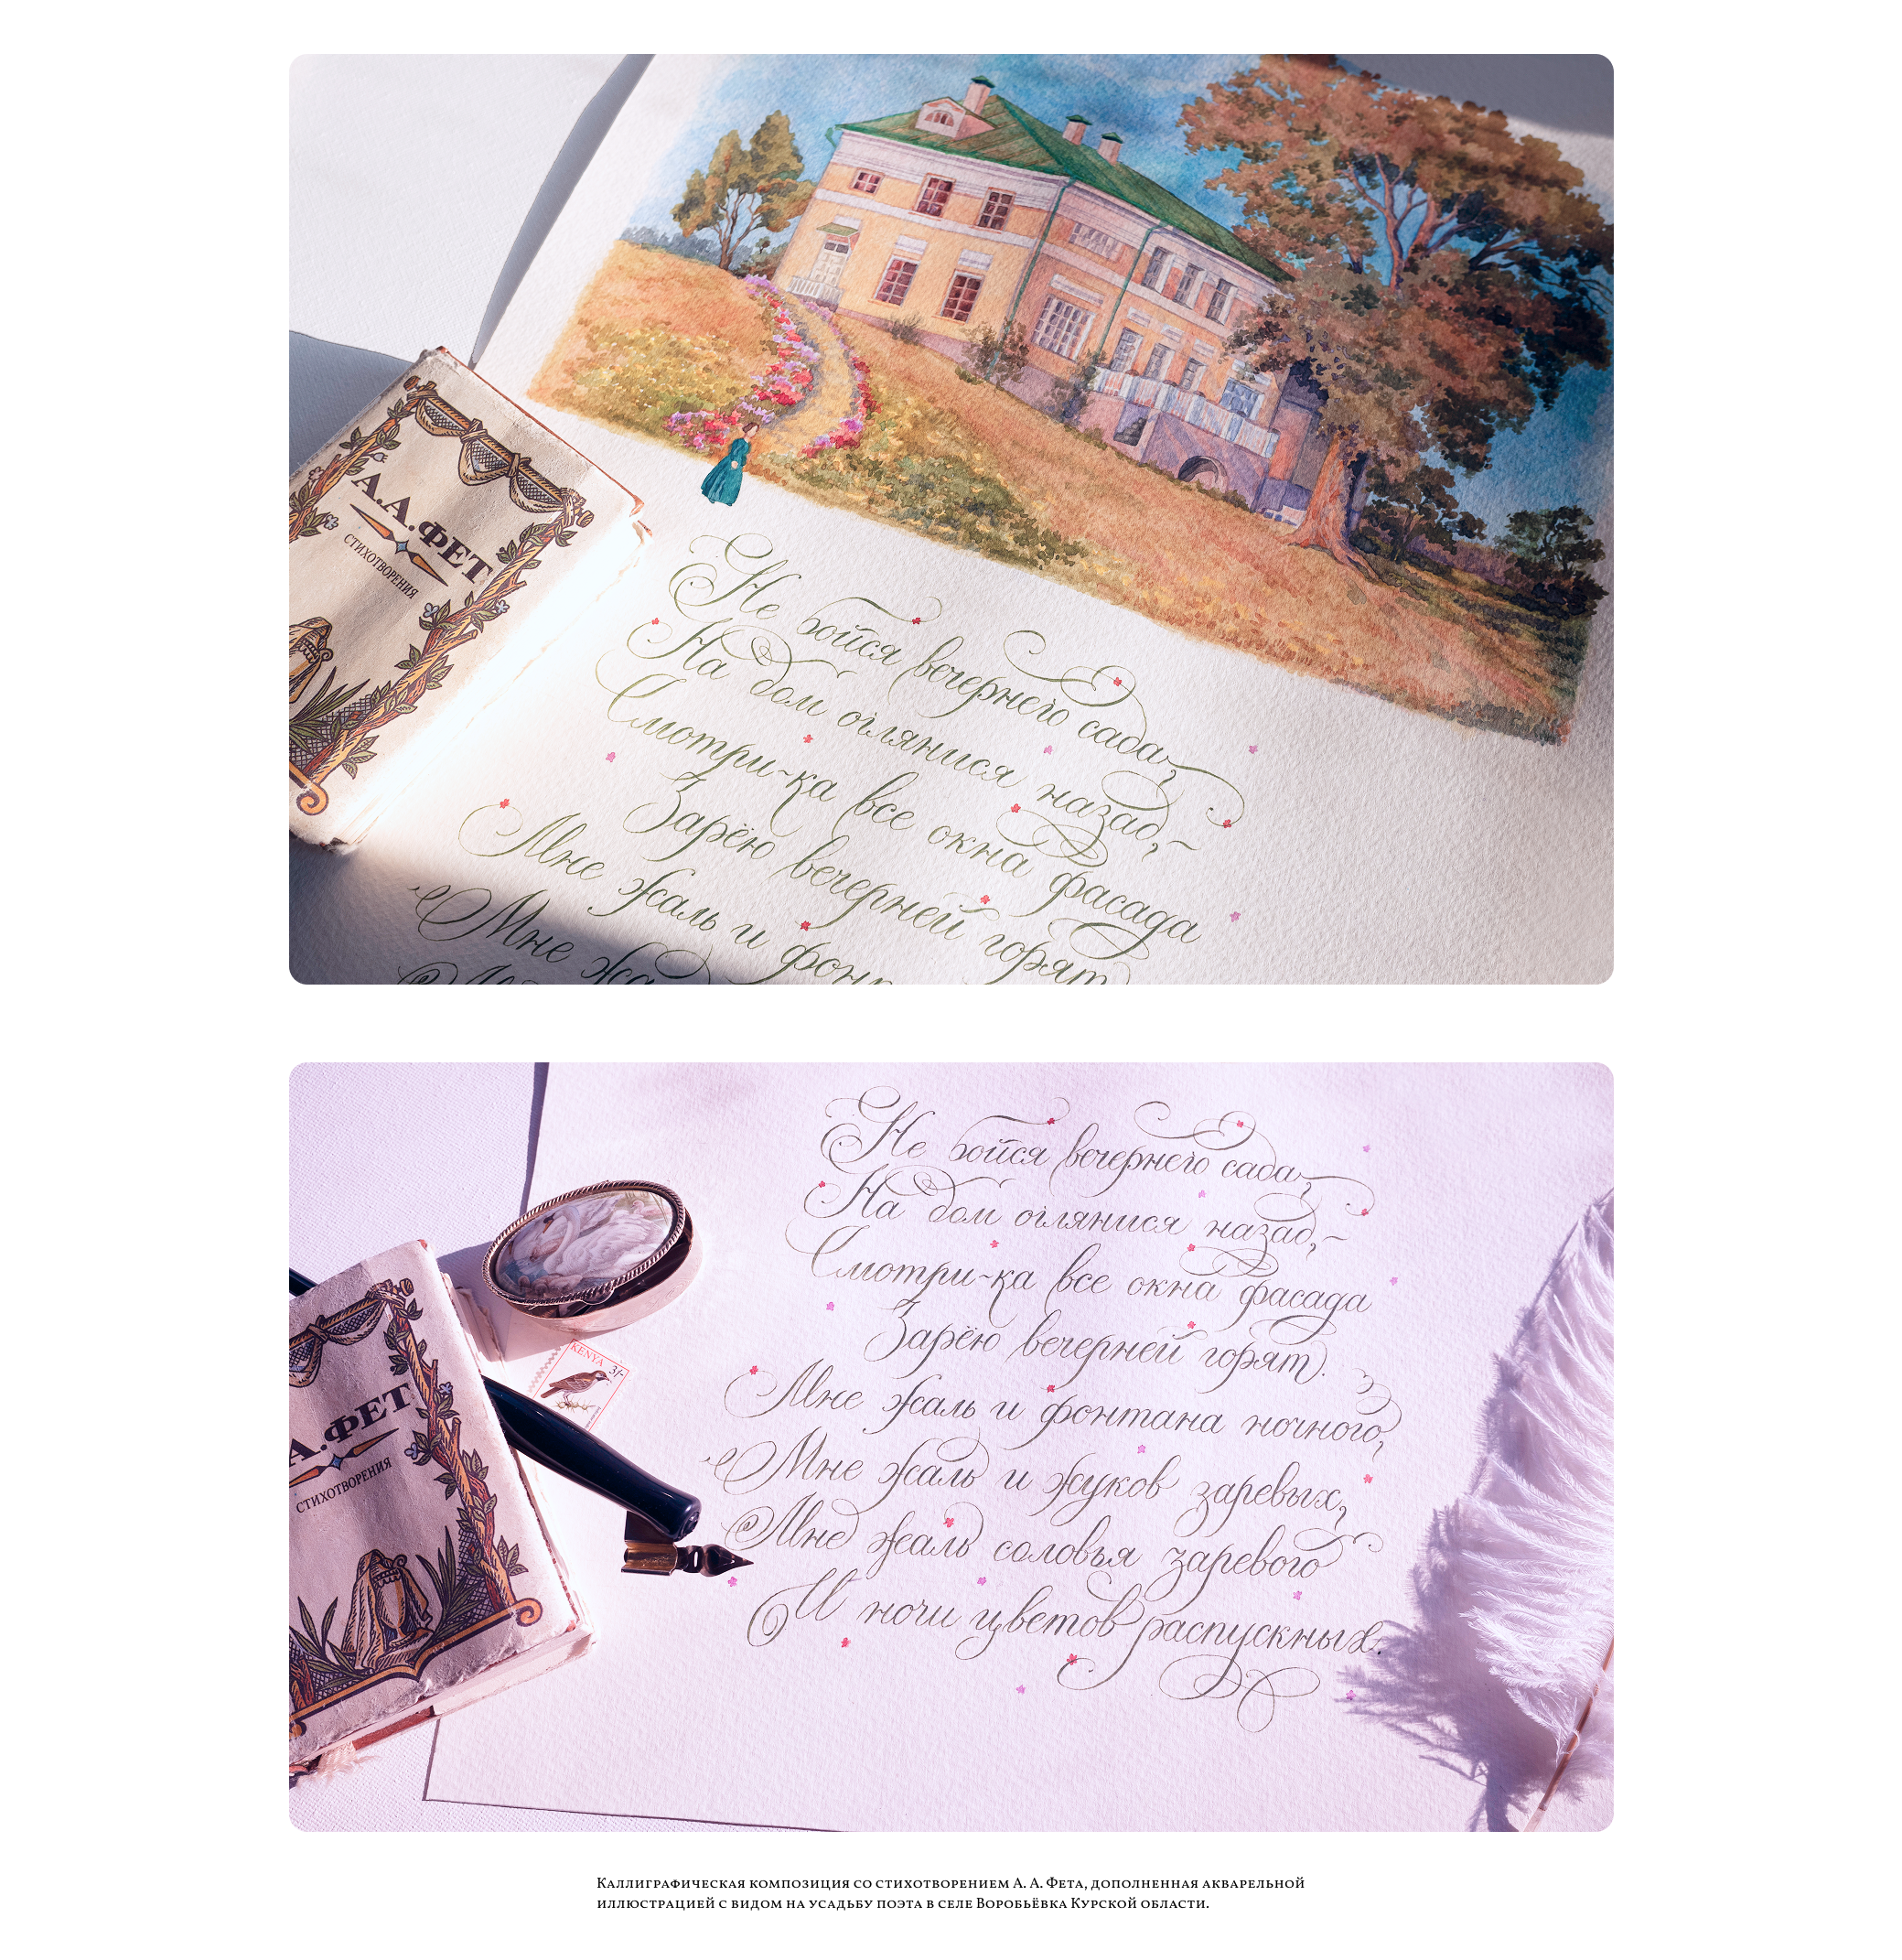 А.А.ФЕТ
СТИХОТВОРЕНИЯ
Не бойся вечернего сада,
На дом оглянися назад,~
Смотри-ка все окна фасада
Зарёю вечерней горят
Мне жаль и фон
Мне жа
Не бойся вечернего сада,
На дом оглянися назад,~
Смотри~ка все окна фасада
Зарёю вечерней горят).
Мне жаль и фонтана ночного,
Мне жаль и жуков заревых,
Мне жаль соловья заревого
И ночи цветов распускных.
KENYA 3/-
А.ФЕТ
СТИХОТВОРЕНИЯ
Каллиграфическая композиция со стихотворением А. А. Фета, дополненная акварельной
иллюстрацией с видом на усадьбу поэта в селе Воробьёвка Курской области.